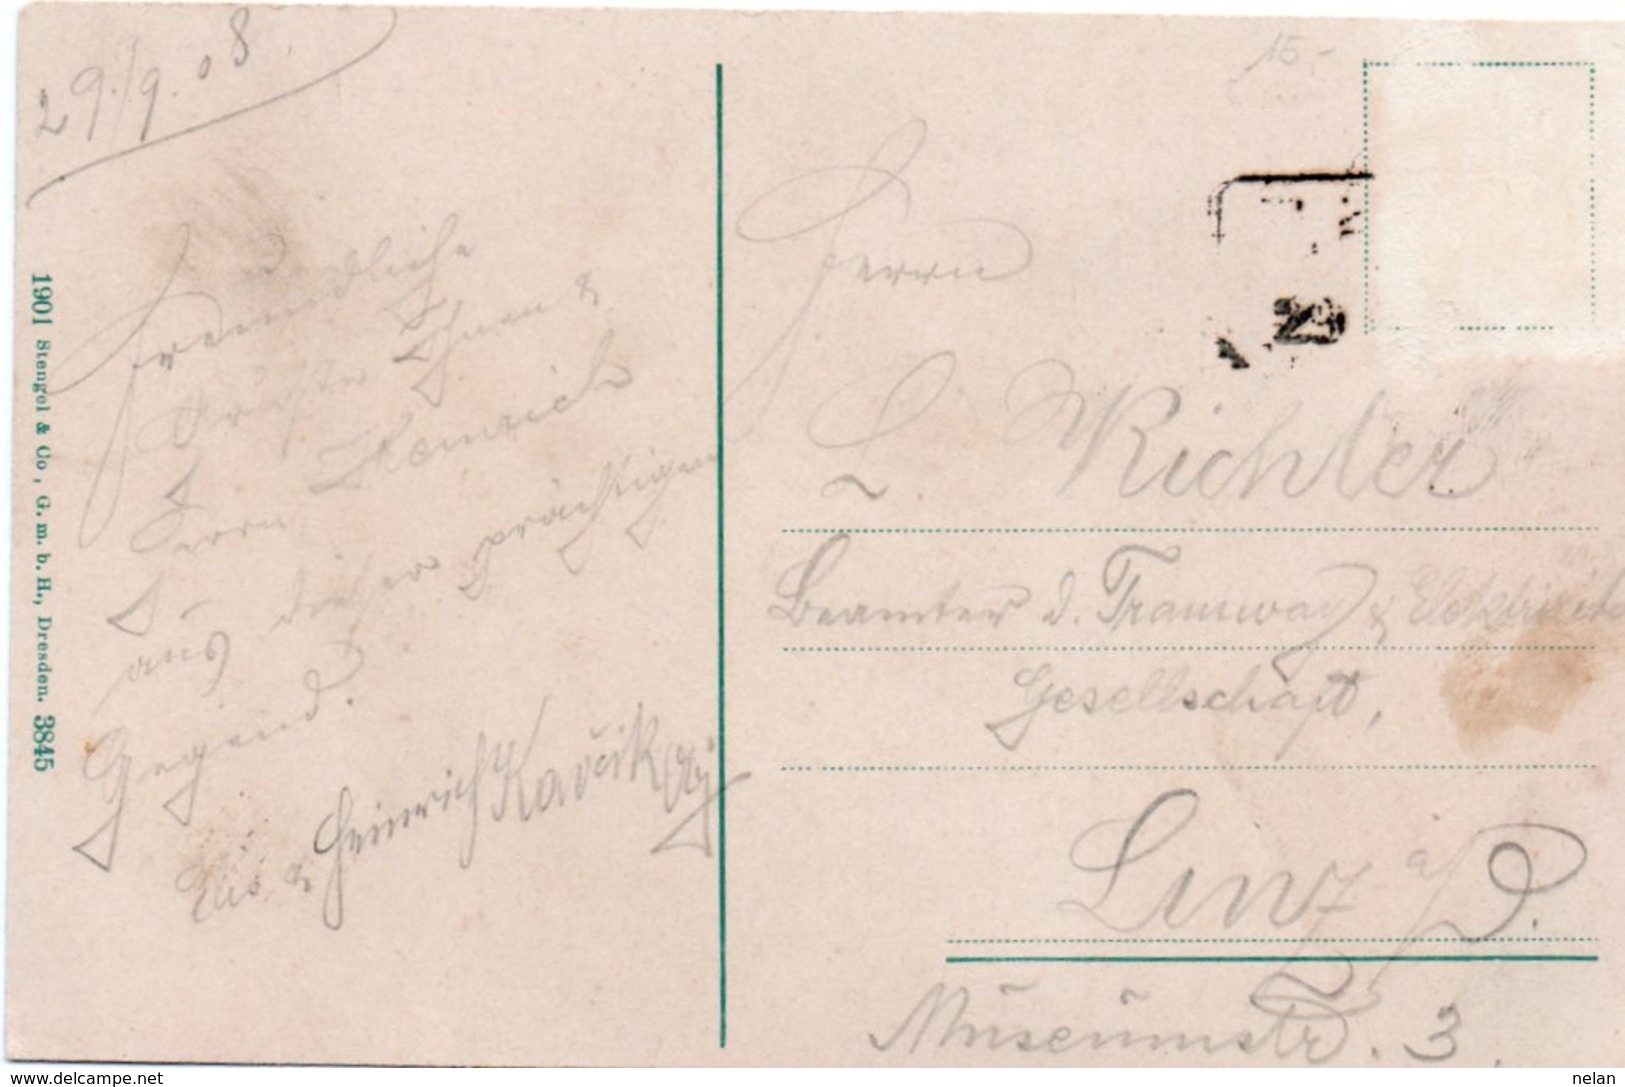 29./9.08.
Freundliche
Grüße Ihnen &
Herrn Heinrich
aus dieser prächtigen
Gegend.
Heinrich Kavčik
1901 Stengel & Co, G. m. b. H., Dresden. 3845
15-
Herrn
L. Richler
Beamter d. Tramway &
Gesellschaft,
Linz a/D.
Museumstr. 3.
29
www.delcampe.net
nelan